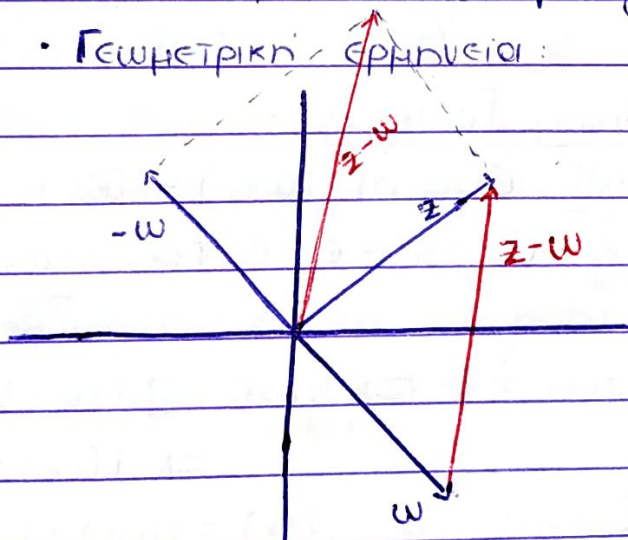 · Γεωμετρική ερμηνεία:
z-w
-w
z
z-w
w